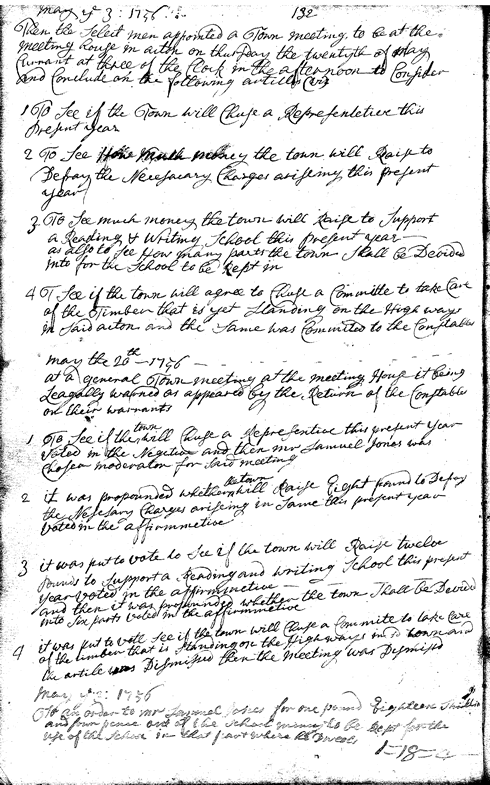 may ye 3: 1756 132
Then the Select men appointed a Town meeting to be at the
meeting house in acton on thursday the twentyth of may
Currant at three of the Clock in the afternoon to Consider
and Conclude on the following articles viz
1 To See if the Town will Chuse a Representetive this
Present year
2 To See How much money the town will Raise to
Defray the Necesacary Charges ariseing this present
year
3 To See much money the town will Raise to Support
a Reading & Writing School this present year
as also to See How many parts the town Shall be Devided
into for the School to be kept in
4 T See if the town will agree to Chuse a Committe to take Care
of the Timber that is yet Standing on the High ways
in Said acton and the Same was Commited to the Constables
may the 20th 1756
at a general Town meeting at the meeting House it being
Leagally warned as appeared by the Return of the Constables
on their warrants
1 To See if the town will Chuse a Representive this present year
voted in the Negitive and then mr Samuel Jones was
Chosen moderator for Said meeting
2 it was propounded whether the town will Raise Eight pound to Defray
the Necesary Charges ariseing in Same this present year
voted in the affirmmetive
3 it was put to vote to See if the town will Raise twelve
pounds to Support a Reading and writing School this present
year voted in the affirmmetive
and then it was propounded whether the town Shall be Devided
into Six parts voted in the affirmmetive
4 it was put to vote See if the town will Chuse a Commite to take Care
of the timber that is Standing on the Highways in town and
the article was Dismissed then the meeting was Dismised
may ye 1756
To an order to mr Samuel Jones for one pound Eighteen Shillin
and four pence out of the School money to be kept for the
use of the School in that part where he Dwels
1-18-4